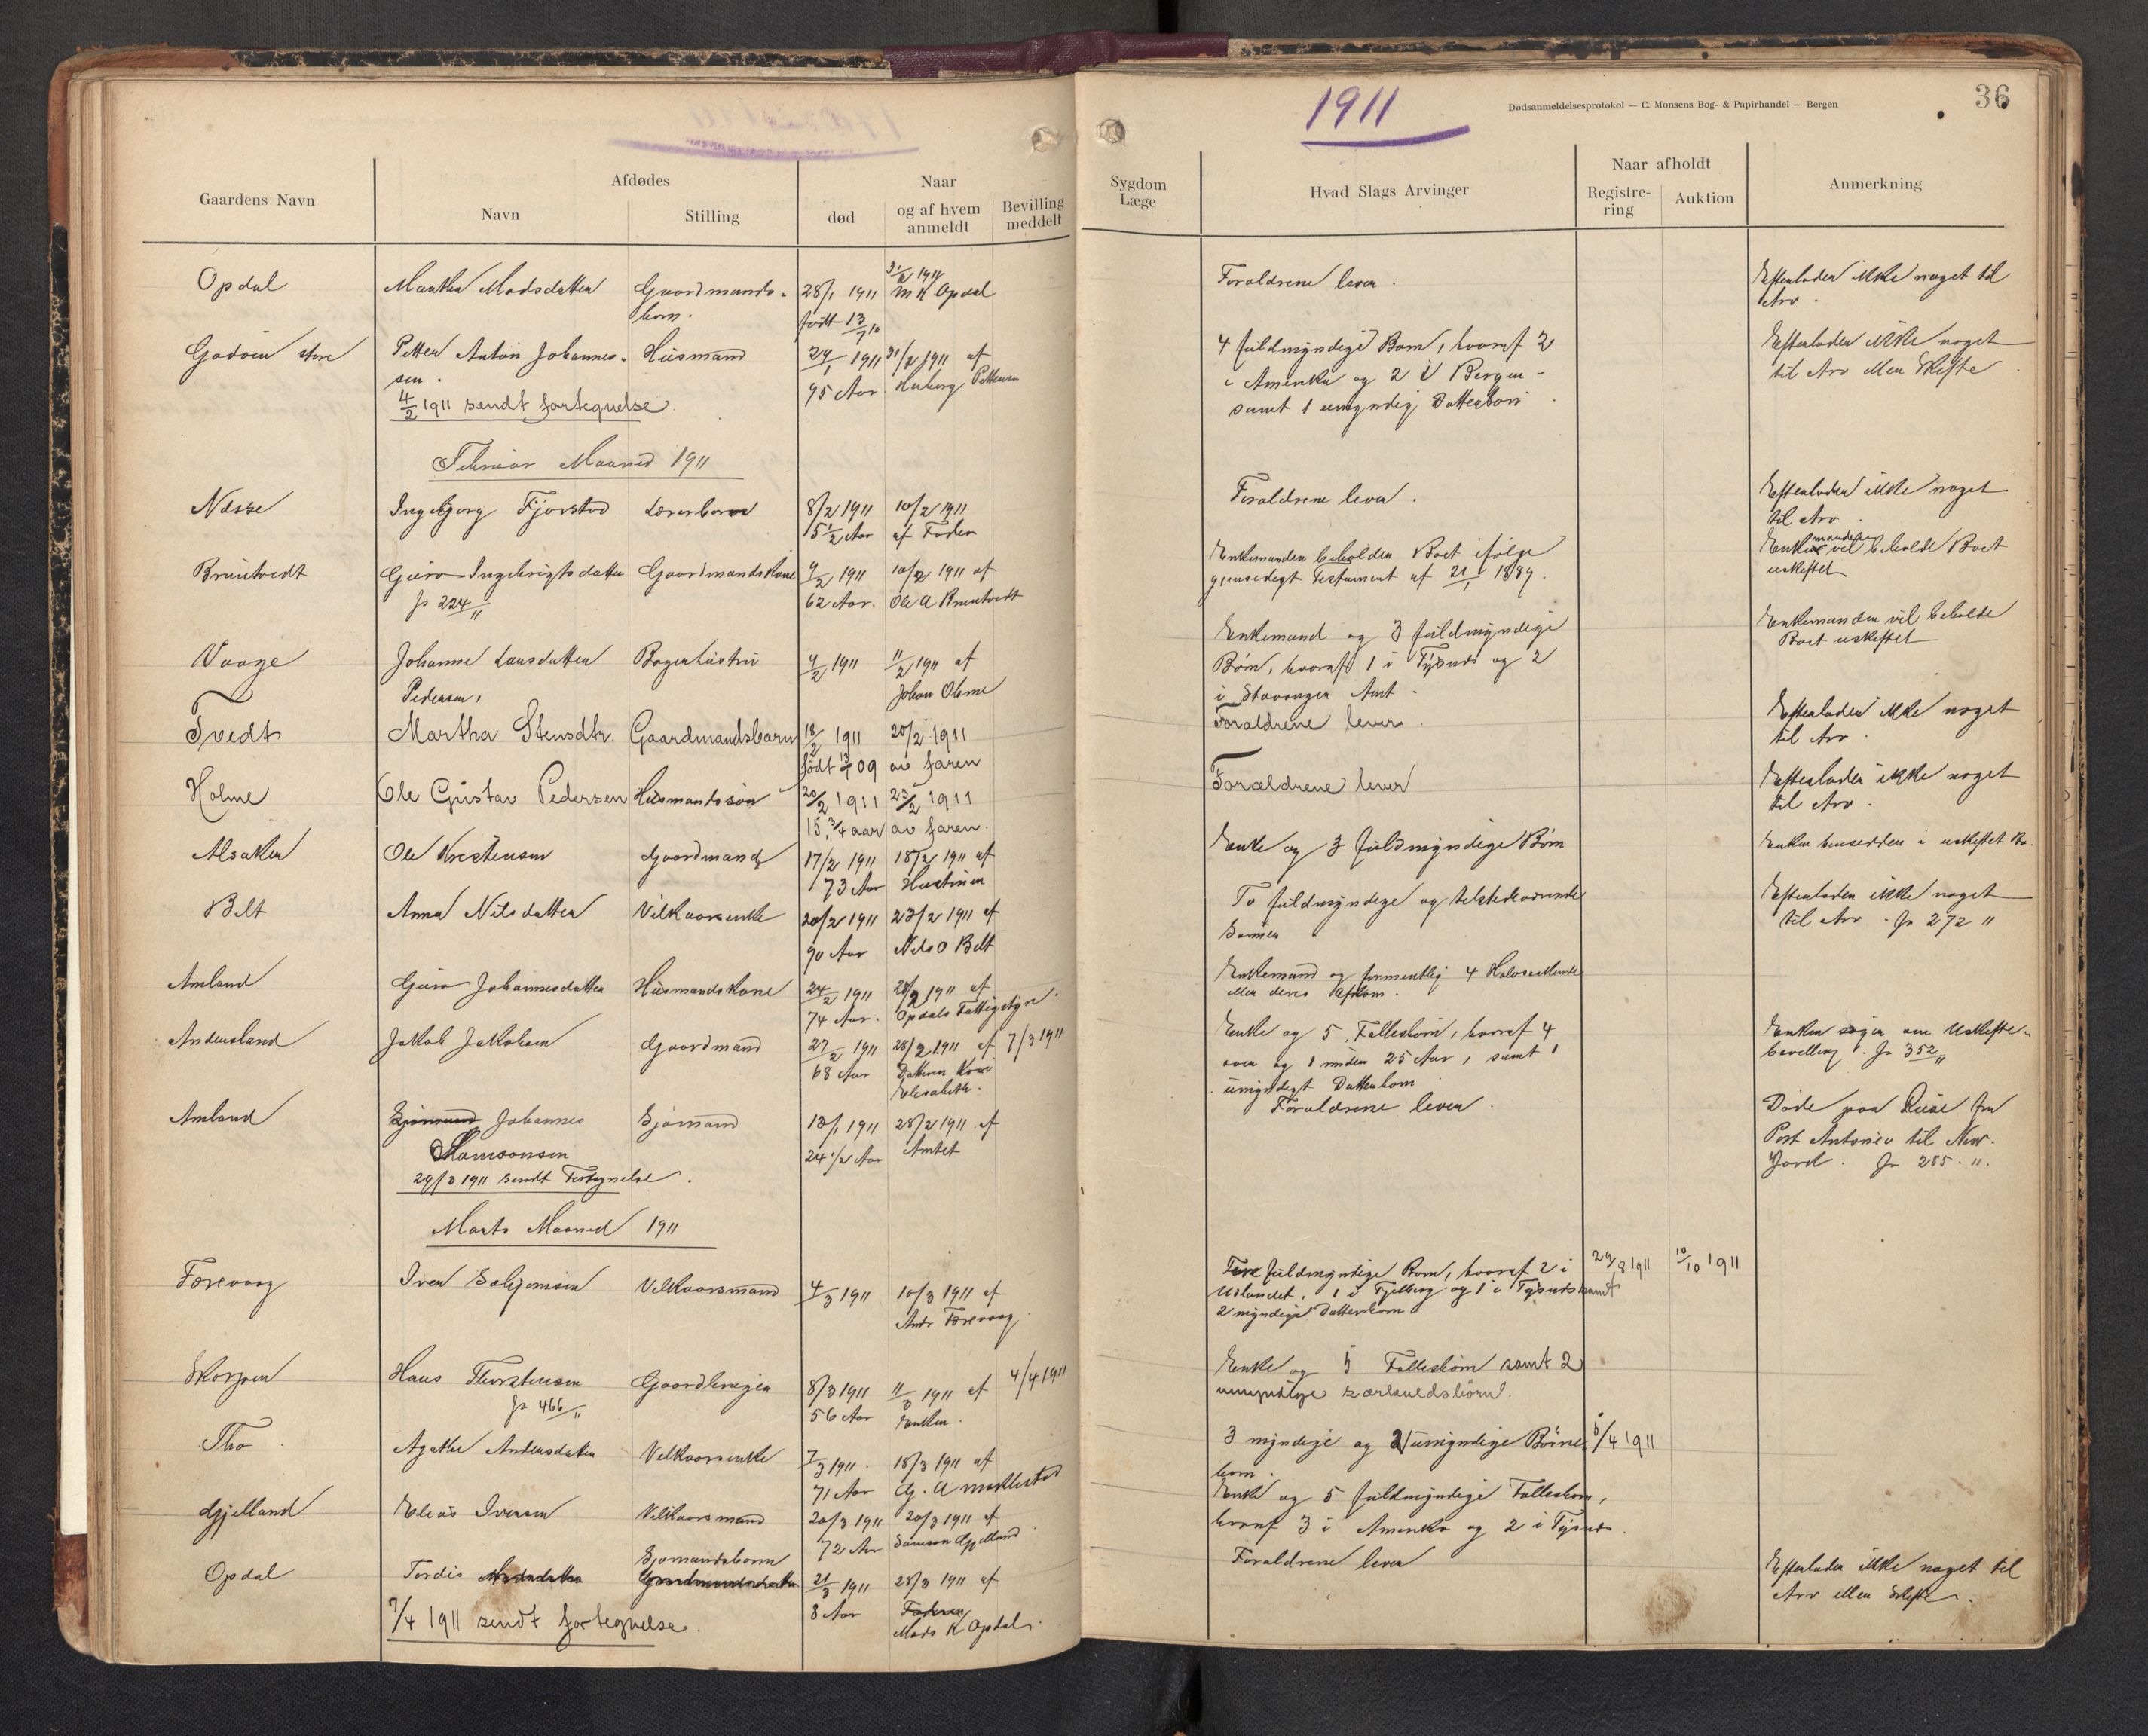 1911
Dødsanmeldelsesprotokol — C. Monsens Bog- & Papirhandel — Bergen
36
Gaardens Navn
Afdødes
Navn
Stilling
Naar
død
og af hvem anmeldt
Bevilling meddelt
Sygdom Læge
Hvad Slags Arvinger
Naar afholdt
Registre-ring
Auktion
Anmerkning
Opdal Martha Madsdatter Gaardmands- 28/1 1911 M K Opdal Forældrene lever. Efterlader ikke noget til
barn. født 13/7 10 Arv.
Godøen store Petter Anton Johannes- Husmand 29/1 1911 31/2 1911 af 4 fuldmyndige Børn, hvoraf 2 Efterlader ikke noget
sen. 95 Aar. Herborg Pettersen i Amerika og 2 i Bergen - til Arv eller Skifte
4/2 1911 sendt fortegnelse. samt 1 umyndig Datterbarn.
Februar Maaned 1911
Næsse Ingebjorg Fjorstad Lærerbarn 8/2 1911 10/2 1911 Forældrene lever. Efterlader ikke noget
15 1/2 Aar af Faderen til Arv
Bruntvedt Guro Ingebrigtsdatter Gaardmandskone 9/2 1911 10/2 1911 af Enkemanden beholder Boet ifølge Enkemanden vil beholde Boet
Jr 224/11 62 Aar. Ole A Bruntvedt gjensidigt Testament af 21/1 1889. uskiftet
Vaage Johanne Larsdatter 9/2 1911 11/2 1911 af Enkemand og 3 fuldmyndige Enkemanden vil beholde
Pedersen, Johan Olsme Børn, hvoraf 1 i Tysnes og 2 Boet uskiftet
i Stavanger Amt.
Tvedt Martha Stensdtr. Gaardmandsbarn 18/2 1911 20/2 1911 Forældrene lever. Efterlader ikke noget
født 09 av faren til Arv.
Holme Ole Gustav Pedersen Husmandssøn 20/2 1911 23/2 1911 Forældrene lever Efterlader ikke noget
15 3/4 aar av faren. til Arv.
Alsaker Ole Kristensen Gaardmand 17/2 1911 18/2 1911 af Enke og 3 fuldmyndige Børn Enken hensidder i uskiftet Bo.
73 Aar Hustruen
Belt Anna Nilsdatter Vilkaarsenke 20/2 1911 23/2 1911 af To fuldmyndige og tilstedeværende Efterlader ikke noget
90 Aar Nils O Belt Sønner til Arv. Jr 272 "
Amland Guro Johannesdatter Husmandskone 24/2 1911 28/2 1911 af Enkemand og formentlig 4 Halvsøskende
74 Aar. Opdals Fattigstyre. eller deres Afkom.
Andersland Jakob Jakobsen Gaardmand 27/2 1911 28/2 1911 af 7/3 1911 Enke og 5 Fællesbørn, hvoraf 4 Enken søger om Uskifte-
68 Aar Datteren Kari over og 1 under 25 Aar, samt 1 bevilling. Jr 352/11
Elisabeth. umyndigt Datterbarn
Amland Johannes Sjømand 13/1 1911 28/2 1911 af Forældrene lever. Døde paa Reise fra
Samsonsen 24 1/2 Aar Amtet Port Antonio til New-
29/3 1911 sendt Fortegnelse. York. Jr 285. ".
Marts Maaned 1911
Færevaag Iver Salejomsen Vilkaarsmand 4/3 1911 10/3 1911 af Fire fuldmyndige Børn, hvoraf 2 i 29/8 1911 10/10 1911
Andr Færevaag. Udlandet, 1 i Fjelberg og 1 i Tysnes samt
2 myndige Datterbørn
Skorpen Hans Thorstensen Gaardbruger 8/3 1911 11/3 1911 af 4/4 1911 Enke og 5 Fællesbørn samt 2
Jr 466/11 56 Aar Enken. umyndige særkuldsbörn.
Tho Agathe Andersdatter Vilkaarsenke 7/3 1911. 18/3 1911 af 3 myndige og 2 umyndige Børne- /4 1911
71 Aar børn.
Gjelland Elias Iversen Vilkaarsmand 20/3 1911 20/3 1911 af Enke og 5 fuldmyndige Fællesbørn,
72 Aar Samson Gjelland hvoraf 3 i Amerika og 2 i Tysnes.
Opdal Tordis Sjømandsbarn 21/3 1911 28/3 1911 af Forældrene lever Efterlader ikke noget til
8 Aar Faderen Arv eller Skifte.
7/4 1911 sendt fortegnelse. Mads K Opdal.